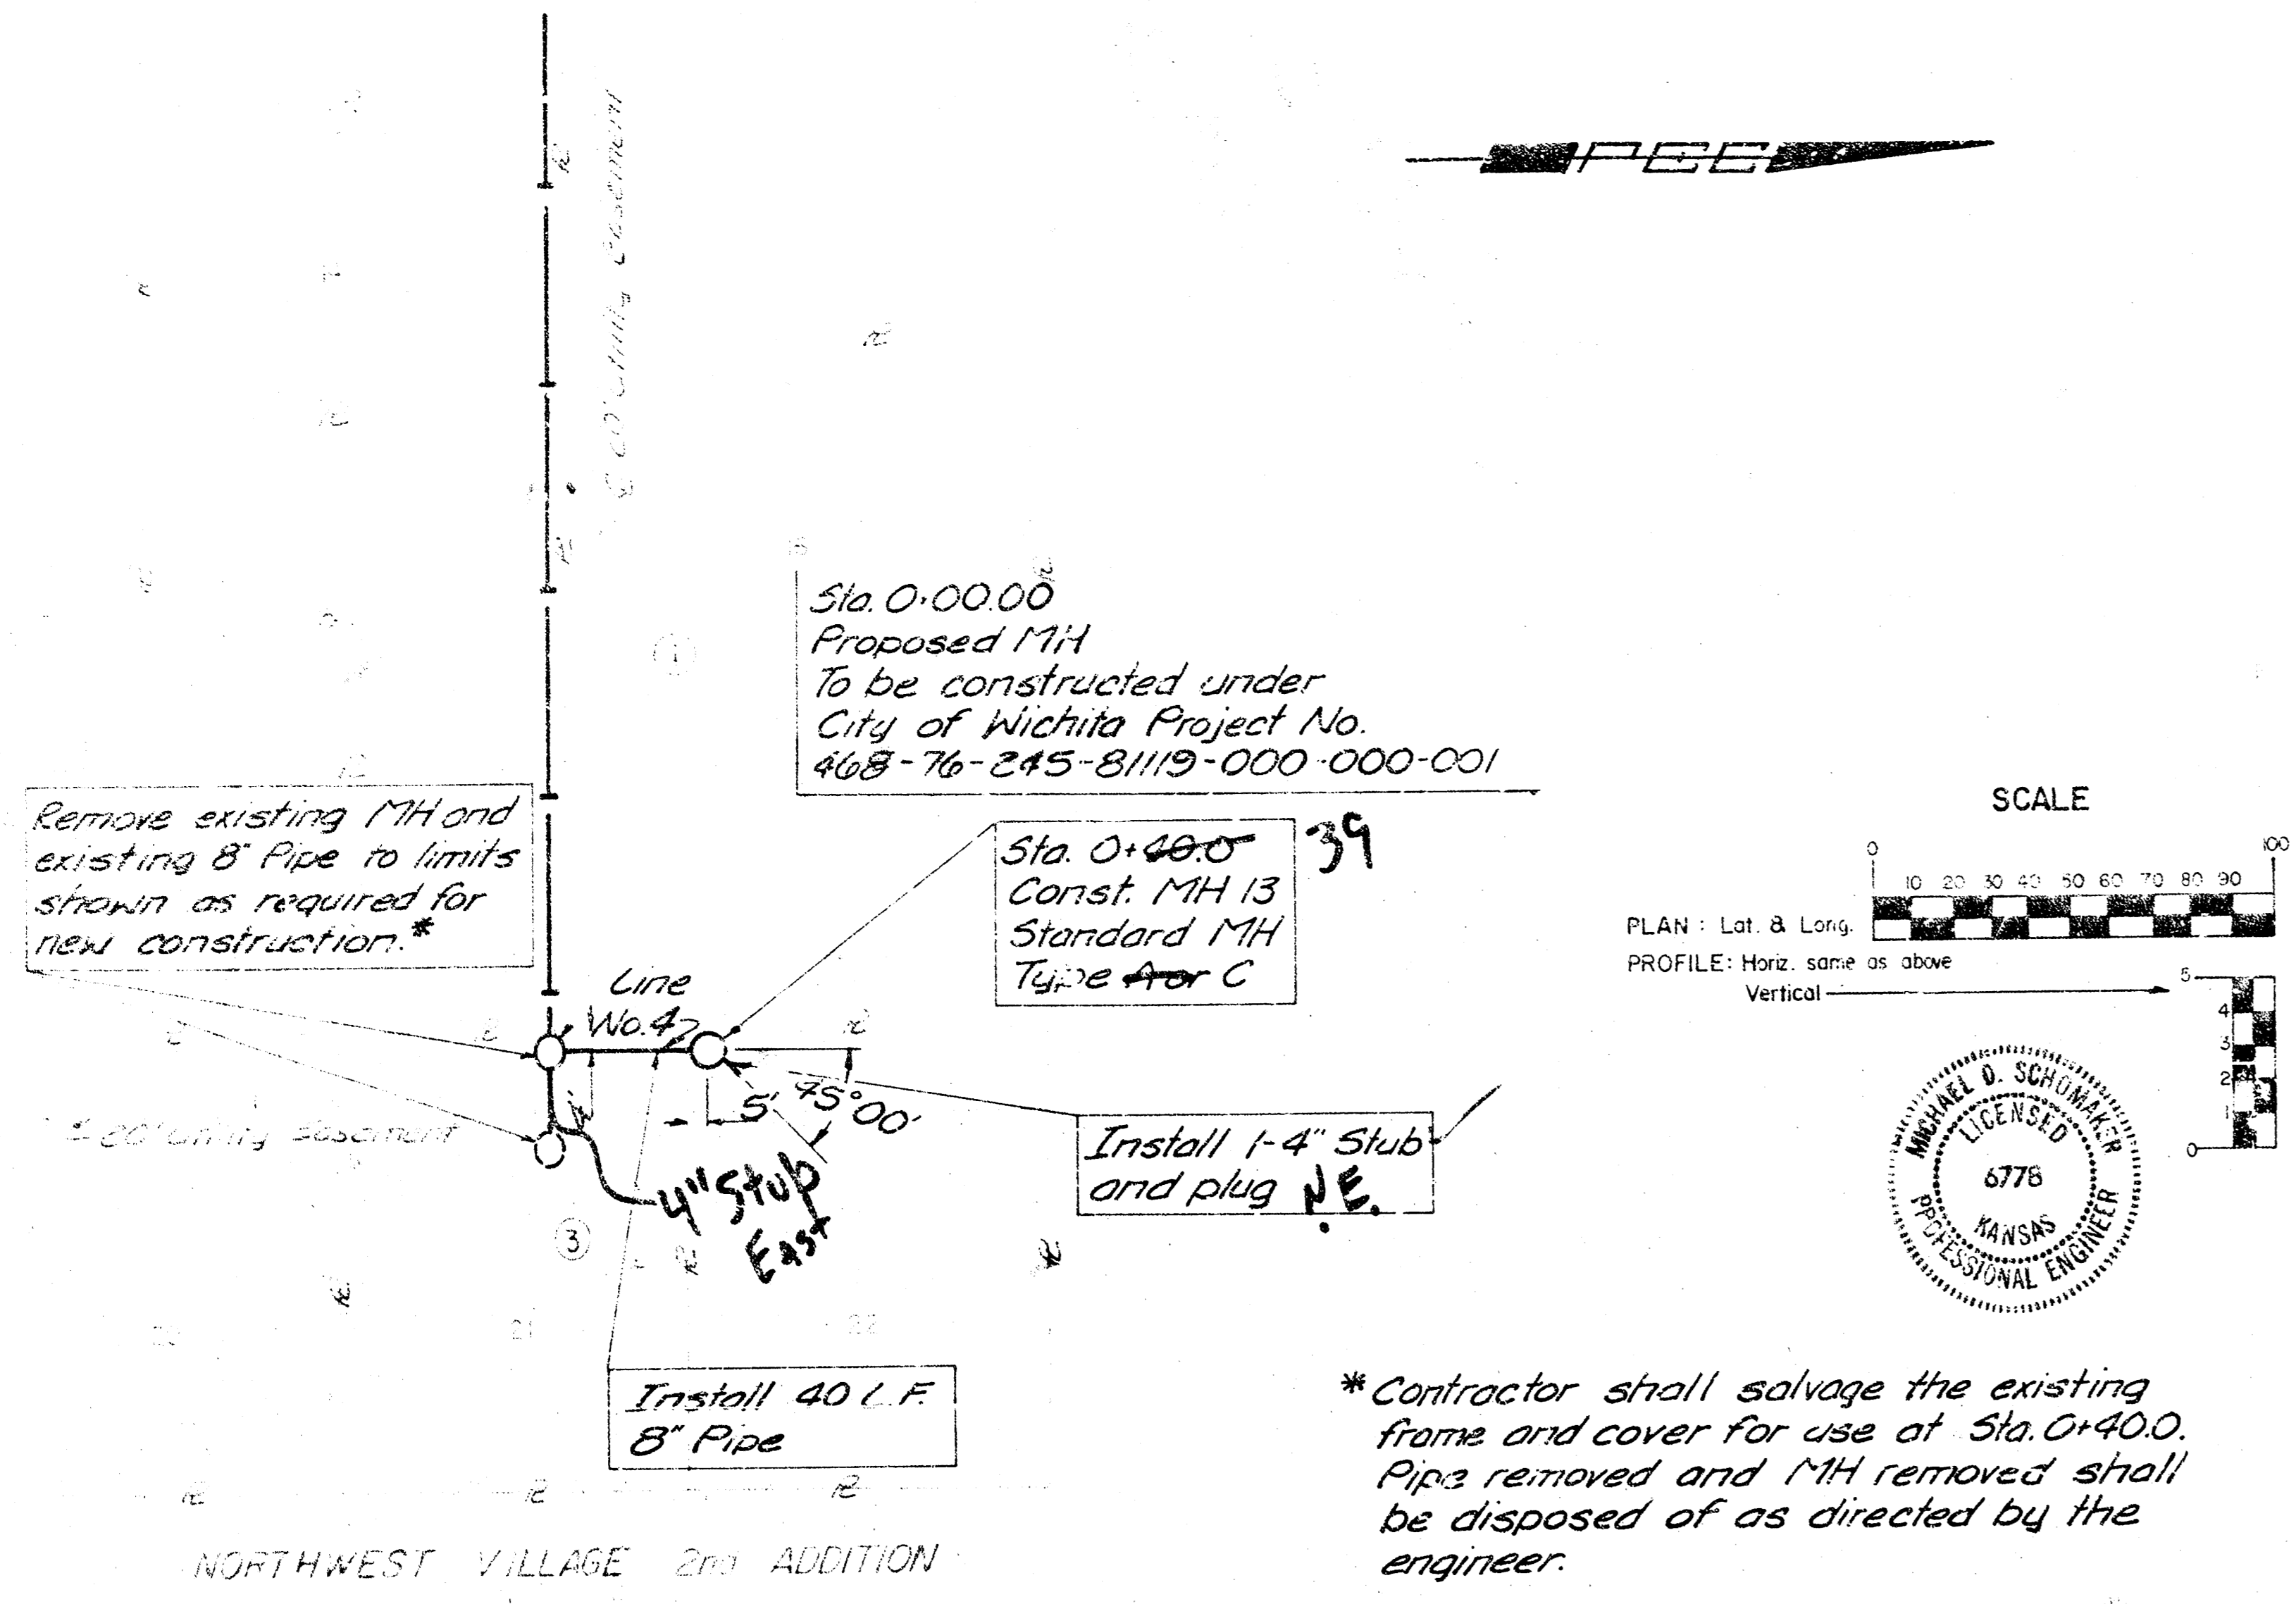 PEC
Sta. 0+00.00
Proposed MH
To be constructed under
City of Wichita Project No.
468-76-245-81119-000-000-001
Remove existing MH and
existing 8" Pipe to limits
shown as required for
new construction.*
Sta. 0+40.0 39
Const. MH 13
Standard MH
Type A or C
SCALE
0 100
10 20 30 40 50 60 70 80 90
PLAN : Lat. & Long.
PROFILE: Horiz. same as above
Vertical
5
4
3
2
1
0
Line
No. 4
5'
45°00'
Utility Easement
20' Utility Easement
4" Stub
East
Install 1-4" Stub
and plug N.E.
MICHAEL D. SCHOMAKER
LICENSED
6778
KANSAS
PROFESSIONAL ENGINEER
1
3
21
22
Install 40 L.F.
8" Pipe
*Contractor shall salvage the existing
frame and cover for use at Sta. 0+40.0.
Pipe removed and MH removed shall
be disposed of as directed by the
engineer.
NORTHWEST VILLAGE 2nd ADDITION